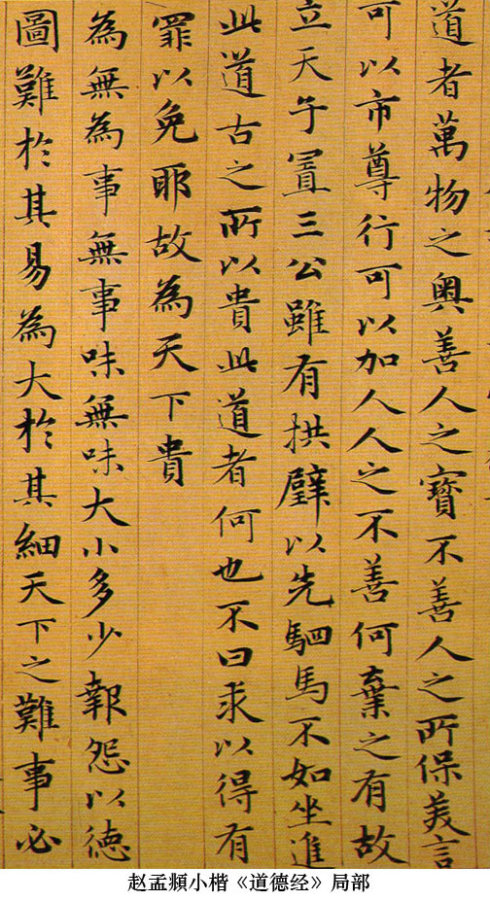 道者萬物之奧善人之寶不善人之所保美言
可以市尊行可以加人人之不善何棄之有故
立天子置三公雖有拱璧以先駟馬不如坐進
此道古之所以貴此道者何也不曰求以得有
罪以免耶故為天下貴
為無為事無事味無味大小多少報怨以德
圖難於其易為大於其細天下之難事必
赵孟頫小楷《道德经》局部